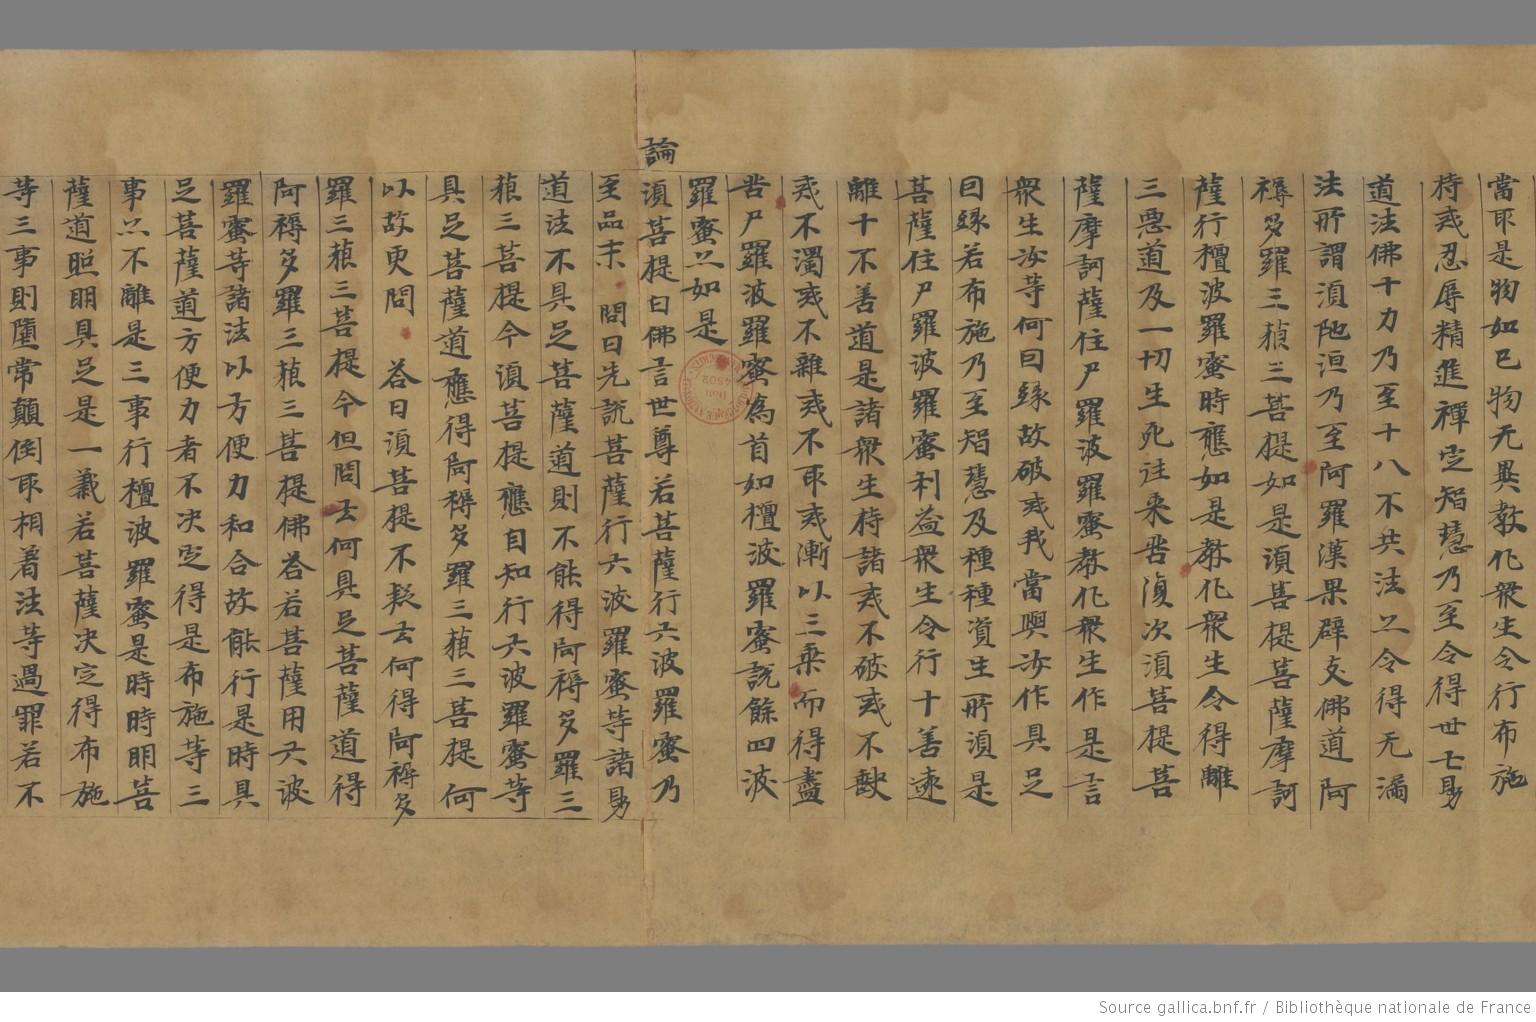 當取是物如已物无異教化衆生令行布施
持戒忍辱精進禪定智慧乃至令得卅七品
道法佛十力乃至十八不共法亦令得无漏
法所謂湏陁洹乃至阿羅漢果辟支佛道阿
耨多羅三藐三菩提如是湏菩提菩薩摩訶
薩行檀波羅蜜時應如是教化衆生令得離
三惡道及一切生死往来苦復次湏菩提菩
薩摩訶薩住尸羅波羅蜜教化衆生作是言
衆生汝等何因緣故破戒我當與汝作具足
因緣若布施乃至智慧及種種資生所湏是
菩薩住尸羅波羅蜜利益衆生令行十善遠
離十不善道是諸衆生持諸戒不破戒不缺
戒不濁戒不雜戒不取戒漸以三乘而得盡
苦尸羅波羅蜜為首如檀波羅蜜說餘四波
羅蜜亦如是
論
湏菩提白佛言世尊若菩薩行六波羅蜜乃
至品末 問曰先說菩薩行六波羅蜜等諸
道法不具足菩薩道則不能得阿耨多羅三
藐三菩提今湏菩提應自知行六波羅蜜等
具足菩薩道應得阿耨多羅三藐三菩提何
以故更問 答曰湏菩提不疑云何得阿耨多
羅三藐三菩提今但問云何具足菩薩道得
阿耨多羅三藐三菩提佛答若菩薩用六波
羅蜜等諸法以方便力和合故能行是時具
足菩薩道方便力者不決定得是布施等三
事亦不離是三事行檀波羅蜜是時時明菩
薩道照明具足是一義若菩薩決定得布施
等三事則墮常顛倒取相著法等過罪若不
Source gallica.bnf.fr / Bibliothèque nationale de France